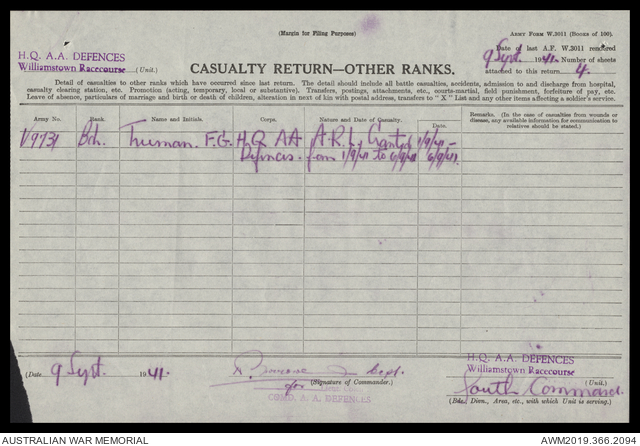 (Margin for Filing Purposes)
ARMY FORM W.3011 (BOOKS OF 100).
H.Q. A.A. DEFENCES
Williamstown Racecourse (Unit.)
CASUALTY RETURN—OTHER RANKS.
Date of last A.F. W.3011 rendered
9 Sept. 1941. Number of sheets
attached to this return 4.
Detail of casualties to other ranks which have occurred since last return. The detail should include all battle casualties, accidents, admission to and discharge from hospital,
casualty clearing station, etc. Promotion (acting, temporary, local or substantive). Transfers, postings, attachments, etc., courts-martial, field punishment, forfeiture of pay, etc.
Leave of absence, particulars of marriage and birth or death of children, alteration in next of kin with postal address, transfers to "X" List and any other items affecting a soldier's service.
Army No. Rank. Name and Initials. Corps. Nature and Date of Casualty. Date. Remarks. (In the case of casualties from wounds or
disease, any available information for communication to
relatives should be stated.)
V9931 Bdr. Truman. F.G. H.Q AA A.R.L. Granted 1/9/41 -
Defences. from 1/9/41 to 6/9/41 6/9/41.
(Date 9 Sept. 1941.
Capt.
(Signature of Commander.)
for
COMD. A. A. DEFENCES
H.Q. A.A. DEFENCES
Williamstown Racecourse
(Unit.)
South Command.
(Bde., Divn., Area, etc., with which Unit is serving.)
AUSTRALIAN WAR MEMORIAL
AWM2019.366.2094